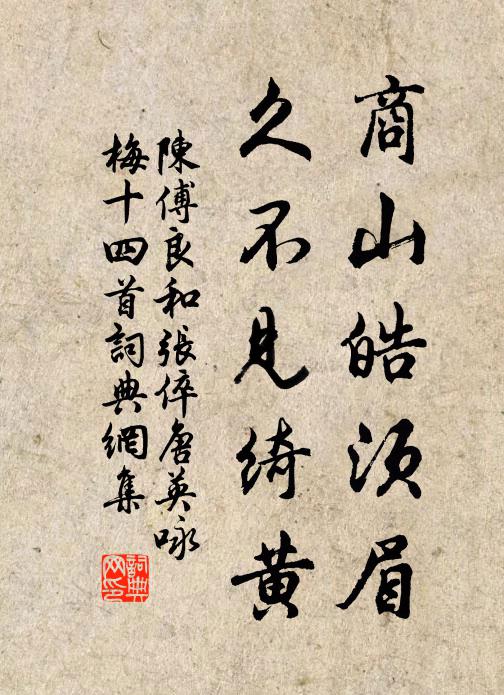 商山皓須眉
久不見綺黃
陳傅良和張倅唐英咏
梅十四首詞典網集
詞典網印